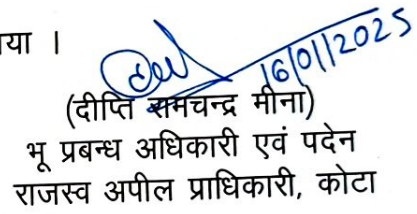 गया ।
16/01/2025
(दीप्ति रामचन्द्र मीना)
भू प्रबन्ध अधिकारी एवं पदेन
राजस्व अपील प्राधिकारी, कोटा